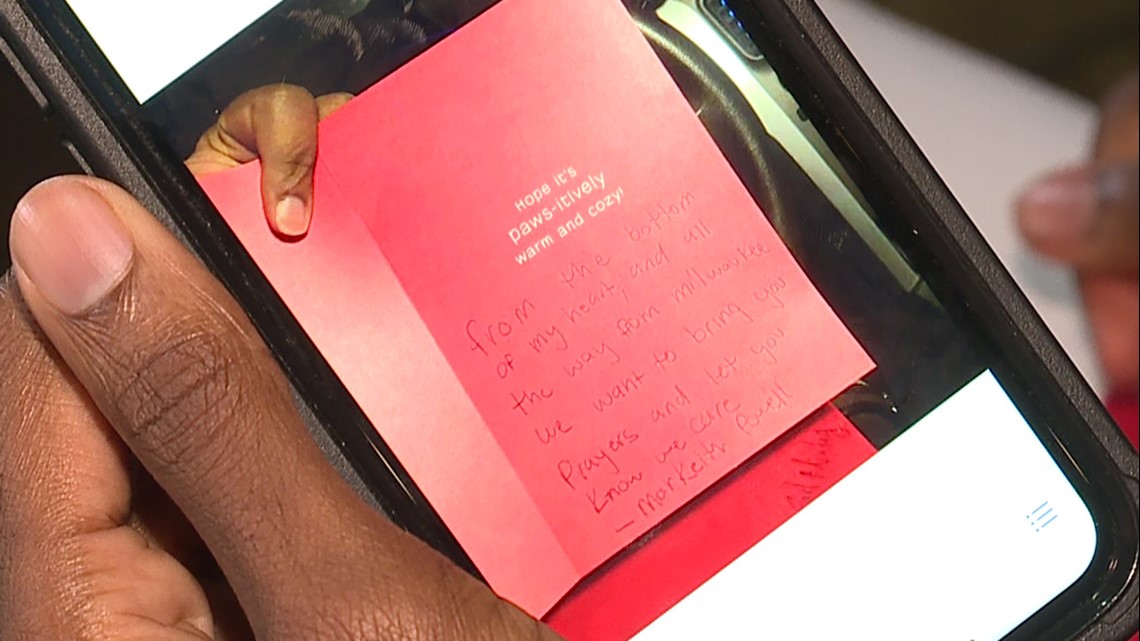 Hope it's
paws-itively
warm and cozy!
from the bottom
of my heart, and all
the way from milwaukee
we want to bring you
Prayers and let you
know we care
- markeith Powell